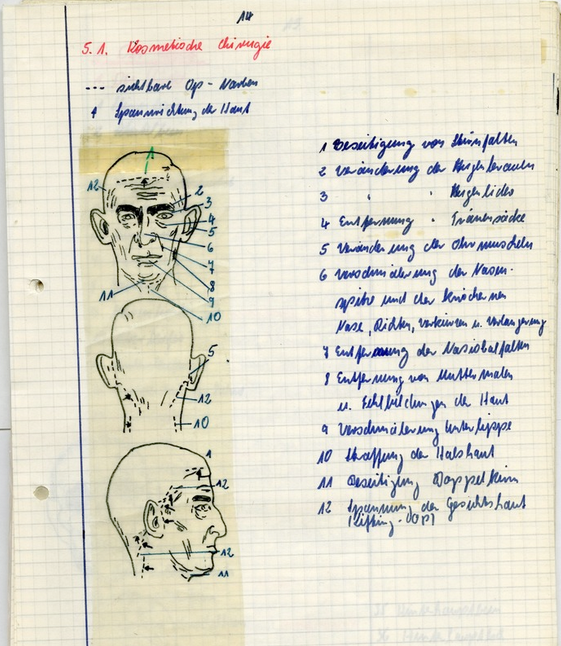 14
5.1. Kosmetische Chirurgie
--- sichtbare Op-Narben
Spannrichtung der Haut
1 Beseitigung von Stirnfalten
2 Veränderung der Augenbrauen
3 " " Augenlider
4 Entfernung " Tränensäcke
5 Veränderung der Ohrmuscheln
6 Verschmälerung der Nasen-
spitze und der knöchernen
Nase, Richten, Verkürzen u. Verlängerung
7 Entfernung der Nasiobalfalten
8 Entfernung von Muttermalen
u. Fehlbildungen der Haut
9 Verschmälerung Unterlippe
10 Straffung der Halshaut
11 Beseitigung Doppelkinn
12 Spannung der Gesichtshaut
(Lifting-OP)
1
12
2
3
4
5
6
7
8
9
11
10
5
12
10
1
12
12
11